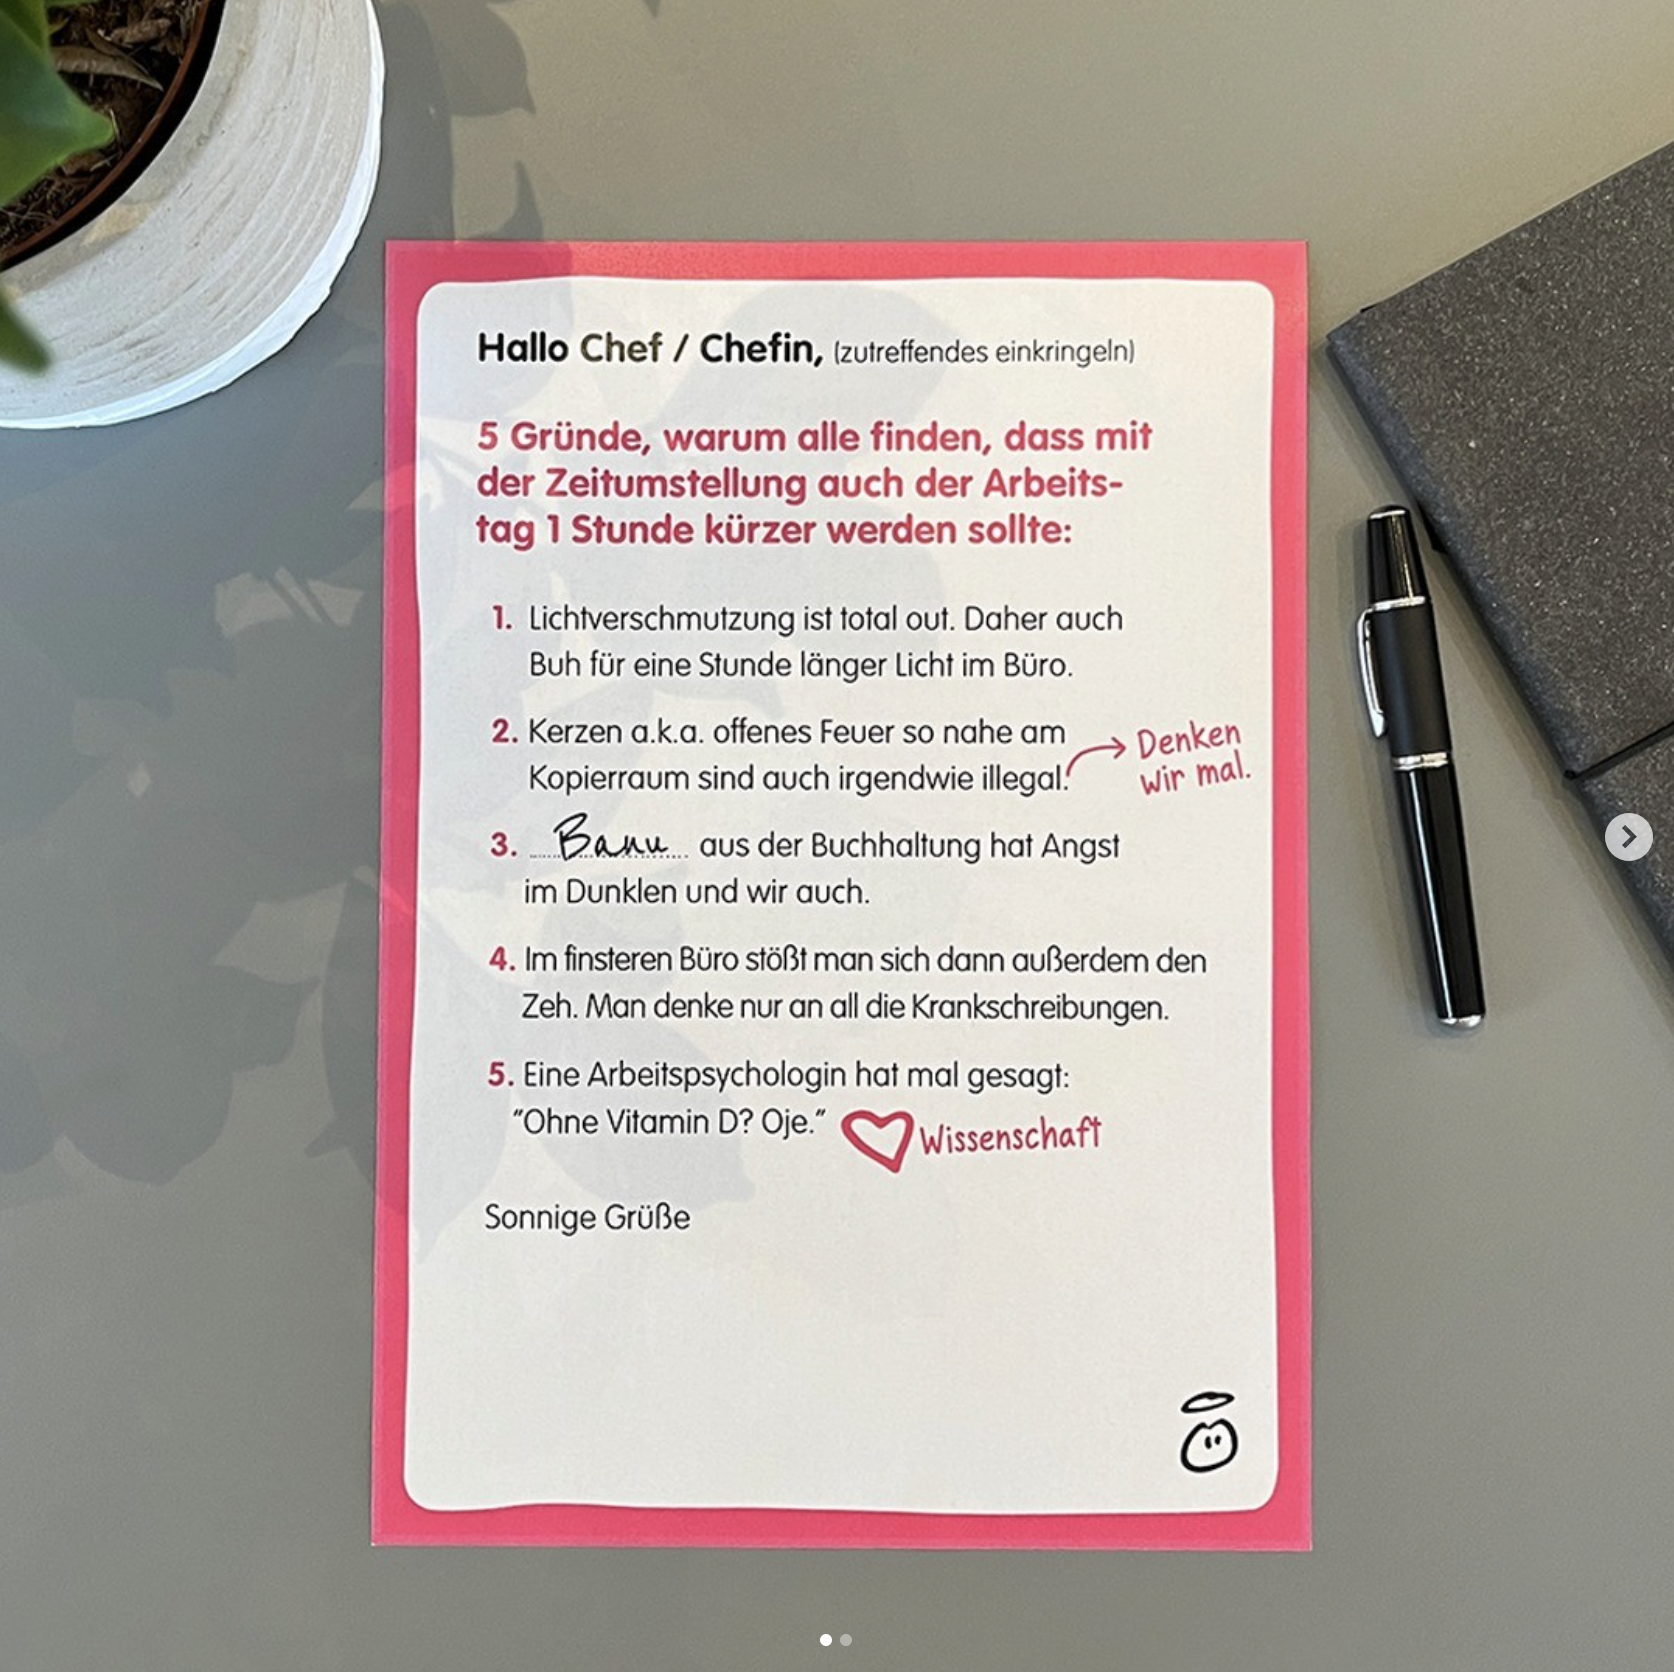 Hallo Chef / Chefin, (zutreffendes einkringeln)
5 Gründe, warum alle finden, dass mit
der Zeitumstellung auch der Arbeits-
tag 1 Stunde kürzer werden sollte:
1. Lichtverschmutzung ist total out. Daher auch
Buh für eine Stunde länger Licht im Büro.
2. Kerzen a.k.a. offenes Feuer so nahe am
Kopierraum sind auch irgendwie illegal.
Denken
wir mal.
3. Banu aus der Buchhaltung hat Angst
im Dunklen und wir auch.
4. Im finsteren Büro stößt man sich dann außerdem den
Zeh. Man denke nur an all die Krankschreibungen.
5. Eine Arbeitspsychologin hat mal gesagt:
"Ohne Vitamin D? Oje." Wissenschaft
Sonnige Grüße